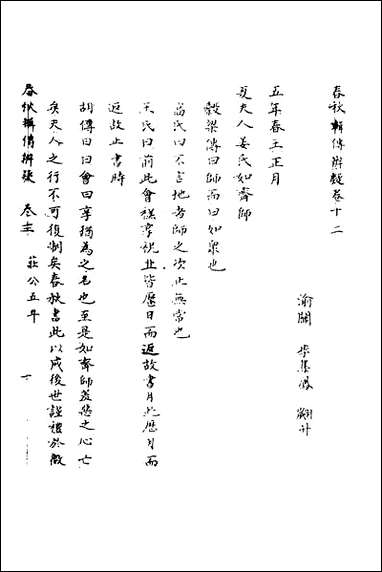 春秋輯傳辨疑卷十二
渝關 李集鳳 翽升
五年春王正月
夏夫人姜氏如齊師
穀梁傳曰師而曰如衆也
高氏曰不言地者師之次止無常也
吳氏曰前此會禚享祝丘皆歷日而返故書月此歷月而
返故止書時
胡傳曰曰會曰享猶為之名也至是如齊師羞惡之心亡
矣夫人之行不可復制矣春秋書此以戒後世謹禮於微
春秋輯傳辨疑 卷十二 莊公五年